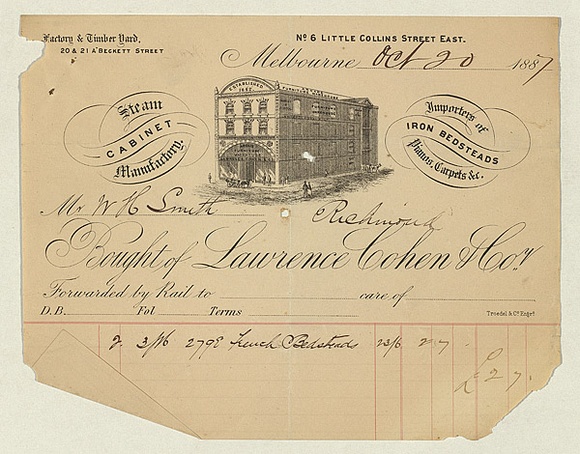 Factory & Timber Yard,
20 & 21 A'BECKETT STREET
No 6 LITTLE COLLINS STREET EAST.
Melbourne Oct 20 1887
Steam
CABINET
Manufactory.
ESTABLISHED
Importers of
IRON BEDSTEADS
Pianos, Carpets &c.
Mr W H Smith Richmond
Bought of Lawrence Cohen & Coy
Forwarded by Rail to care of
D.B. Fol Terms
Troedel & Co Engrs
2 3/16 279E French Bedsteads 23/6 2 7
£ 2 7